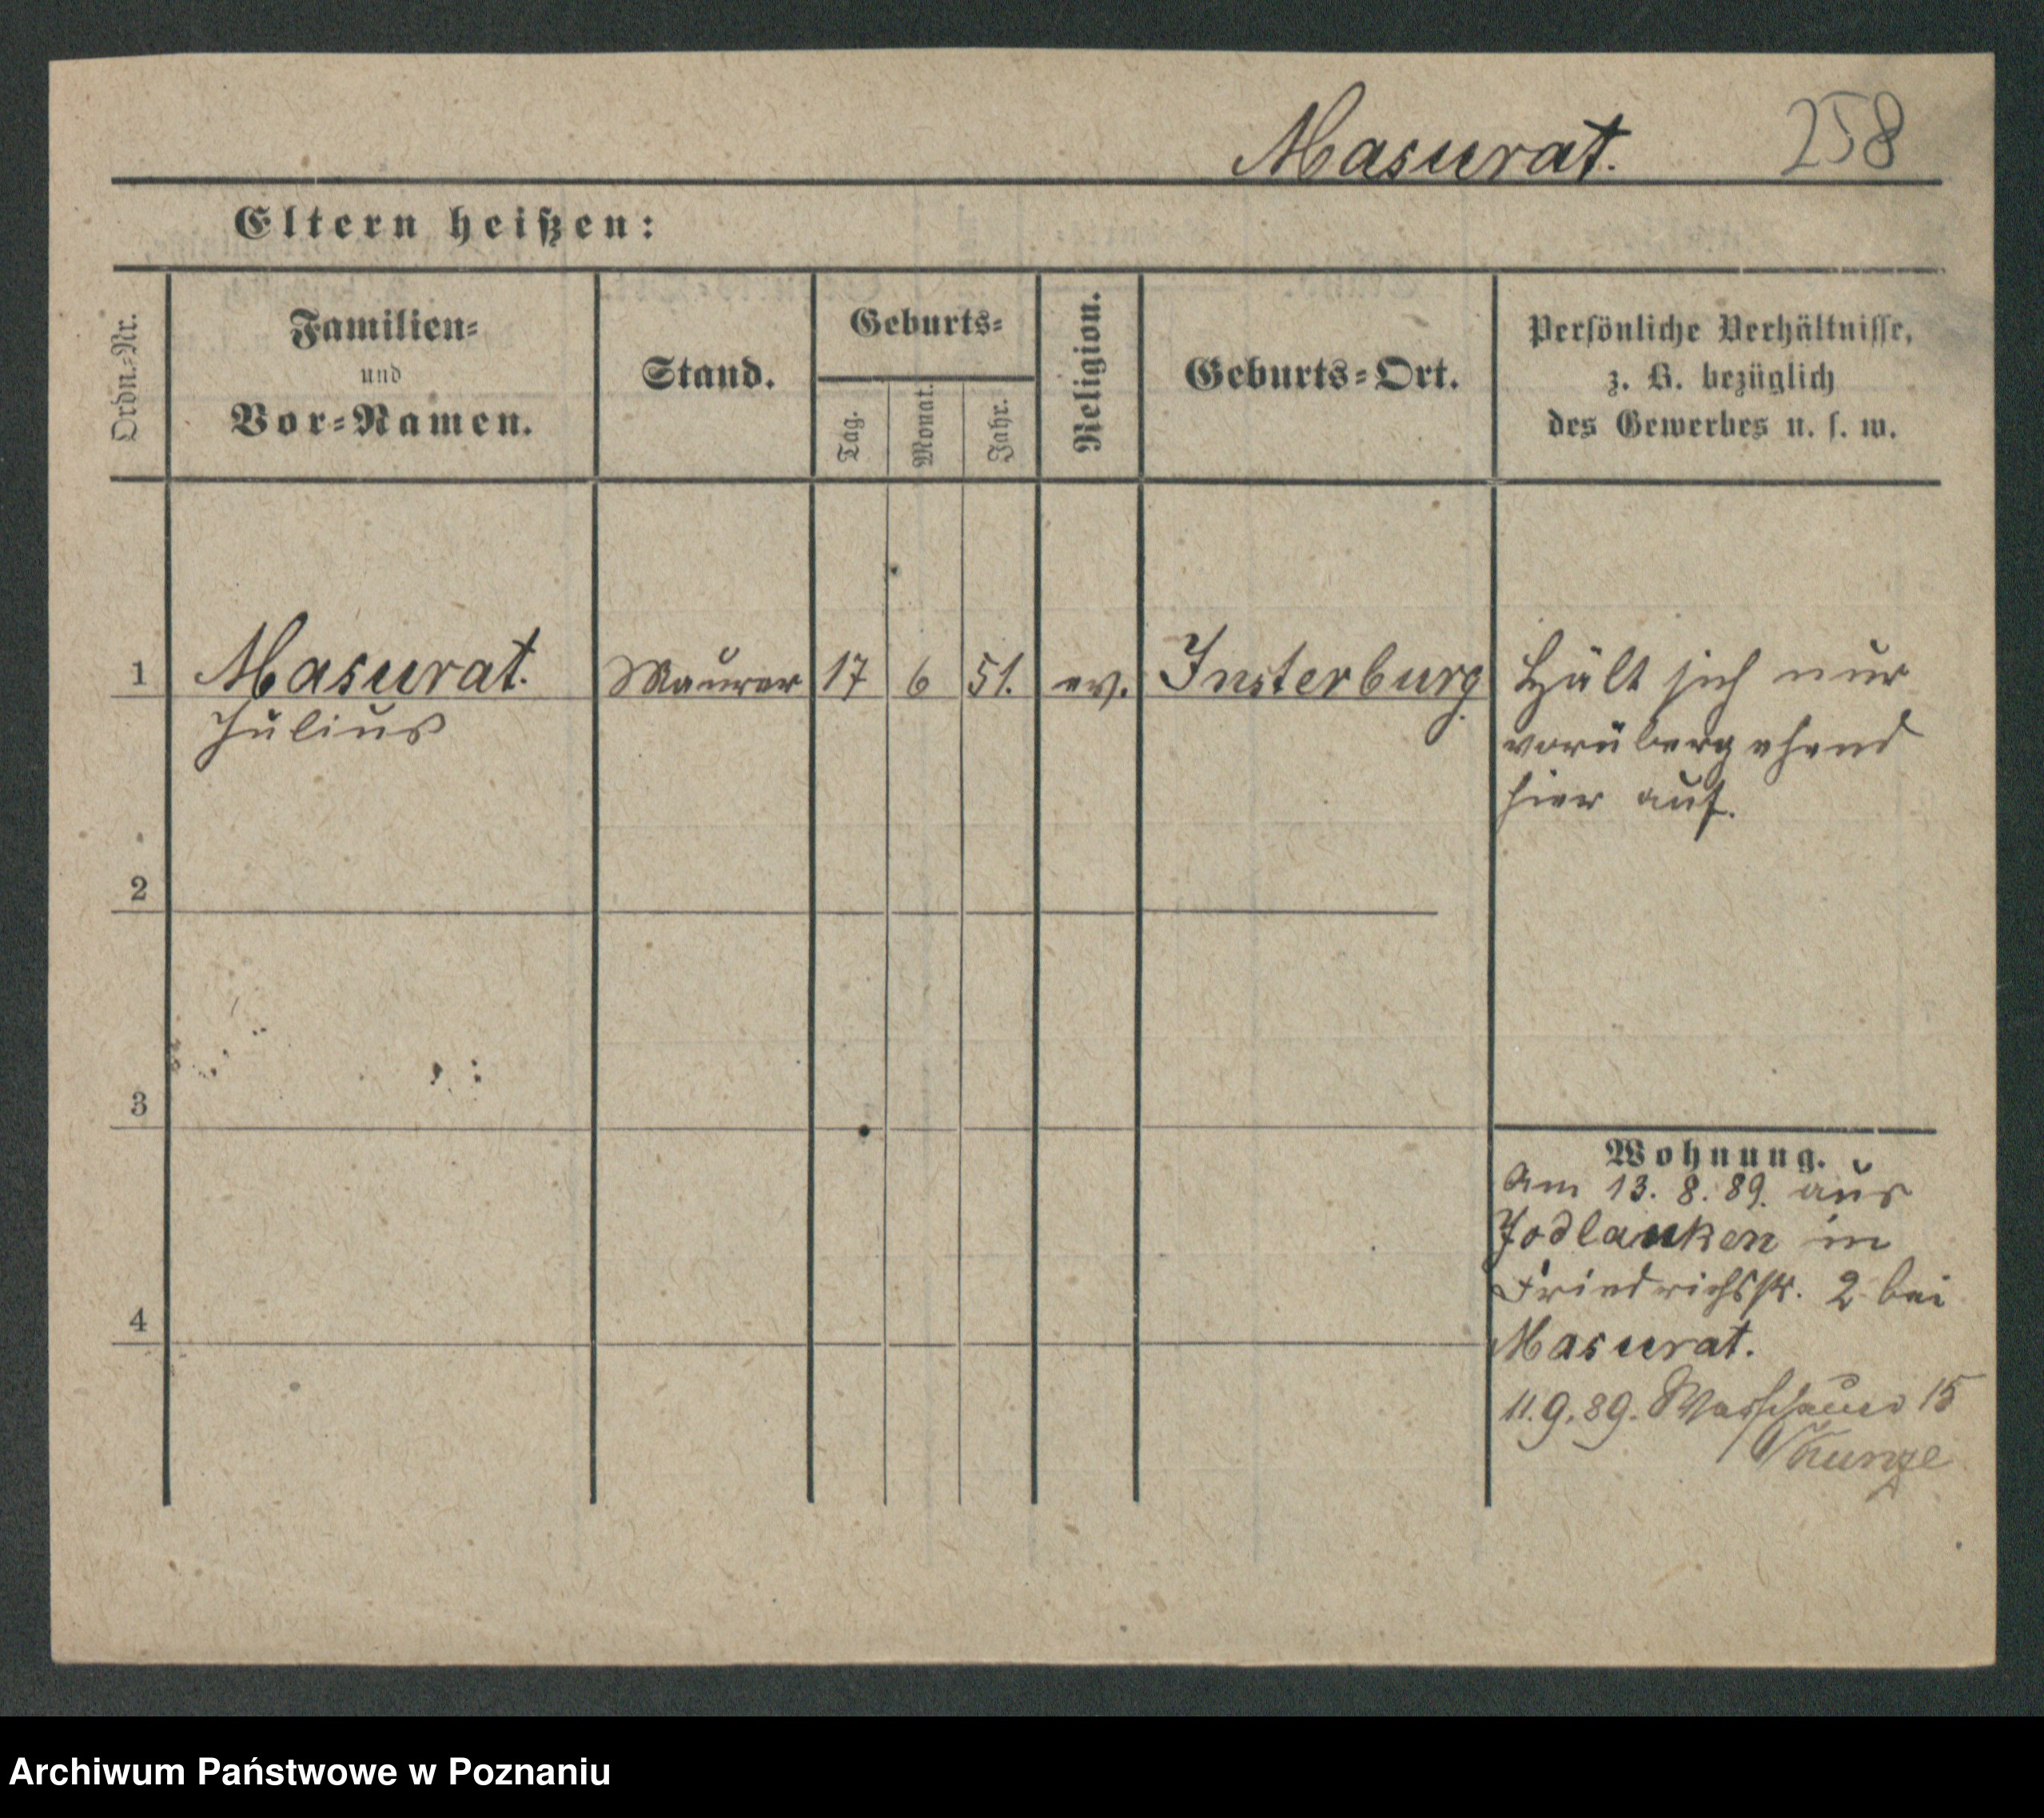 Masurat. 258
Eltern heißen:
Ordn.-Nr.
Familien-
und
Vor-Namen.
Stand.
Geburts-
Tag.
Monat.
Jahr.
Religion.
Geburts-Ort.
Persönliche Verhältnisse,
z. B. bezüglich
des Gewerbes u. s. w.
1 Masurat. Maurer 17 6 51. ev. Insterburg
Julius
Hält sich nur
vorübergehend
hier auf.
2
3
4
Wohnung.
Am 13. 8. 89. aus
Jodlauken in
Friedrichsstr. 2 bei
Masurat.
11. 9. 89. 15
Archiwum Państwowe w Poznaniu